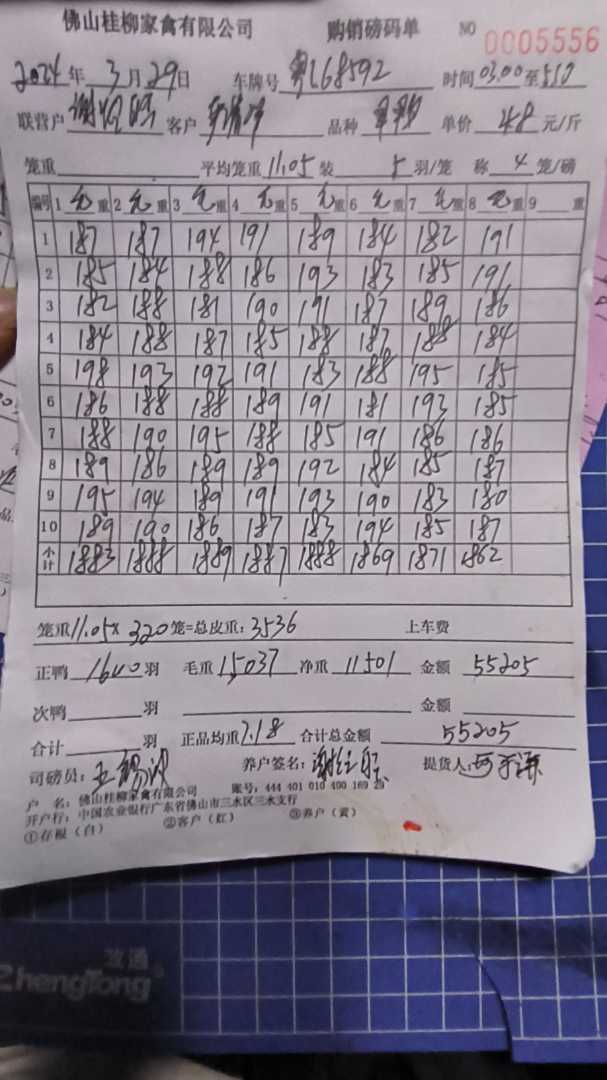 佛山桂柳家禽有限公司 购销磅码单 NO 0005556
2024年 3月29日 车牌号 粤L68592 时间03.00至510
联营户 客户 品种 单价 4.8 元/斤
笼重 平均笼重 11.05 装 5 羽/笼 称 4 笼/磅
编号 1 毛重 2 毛重 3 毛重 4 毛重 5 毛重 6 毛重 7 毛重 8 毛重 9 重
1 187 187 194 191 189 184 182 191
2 185 184 188 186 193 183 185 191
3 182 188 181 190 191 187 189 186
4 184 188 187 185 188 187 188 184
5 198 193 192 191 183 188 195 185
6 186 188 188 189 191 181 193 185
7 188 190 195 188 185 191 186 186
8 189 186 189 189 192 184 185 187
9 195 194 189 191 193 190 183 180
10 189 190 186 187 183 194 185 187
小计 1883 1888 1889 1887 1888 1869 1871 1862
笼重 11.05× 320 笼=总皮重: 3536 上车费
正鸭 1640 羽 毛重 15037 净重 11501 金额 55205
次鸭 羽 金额
合计 羽 正品均重 7.18 合计总金额 55205
司磅员: 养户签名: 提货人:
户 名: 佛山桂柳家禽有限公司 账号: 444 401 010 400 169 29
开户行: 中国农业银行广东省佛山市三水区三水支行
①存根（白） ②客户（红） ③养户（黄）
ZhengTong